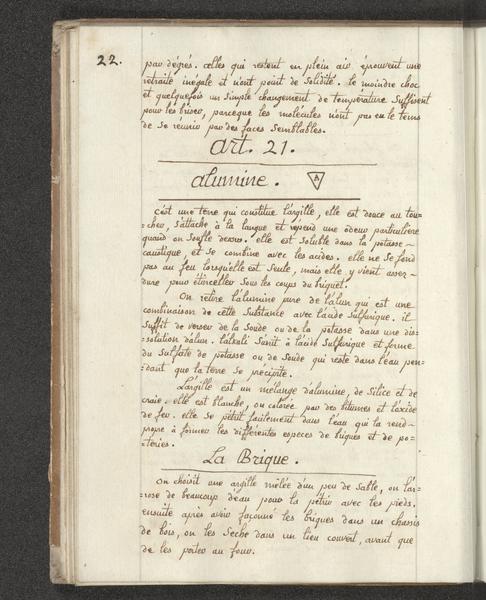 22.
par dégrés. celles qui restent en plein air éprouvent une
retraite inégale et n'ont point de solidité. le moindre choc
et quelquefois un simple changement de température suffisent
pour les briser, parceque les molécules n'ont pas eu le tems
de se réunir par des faces semblables.
art. 21.
alumine.
c'est une terre qui constitue l'argille, elle est douce au tou=
=cher, s'attache à la langue et répend une odeur particulière
quand on soufle dessus. elle est soluble dans la potasse
caustique, et se combine avec les acides. elle ne se fond
pas au feu lorsqu'elle est seule, mais elle y vient assez
dure pour étinceller sous les coups du briquet.
On retire l'alumine pure de l'alun qui est une
combinaison de cette substance avec l'acide sulfurique. il
suffit de verser de la soude ou de la potasse dans une dis=
=solution d'alun. l'alkali s'unit à l'acide sulfurique et forme
du sulfate de potasse ou de soude qui reste dans l'eau pen=
=dant que la terre se précipite.
L'argille est un mélange d'alumine, de silice et de
craie. elle est blanche, ou colorée par des bitumes et l'oxide
de fer. elle se pétrit facilement dans l'eau qui la rend
propre à former les différentes especes de briques et de po=
=teries.
La Brique.
On choisit une argille mêlée d'un peu de sable, on l'ar=
=rose de beaucoup d'eau pour la pétrir avec les pieds.
ensuite après avoir façonné les briques dans un chassis
de bois, on les seche dans un lieu couvert, avant que
de les porter au four.